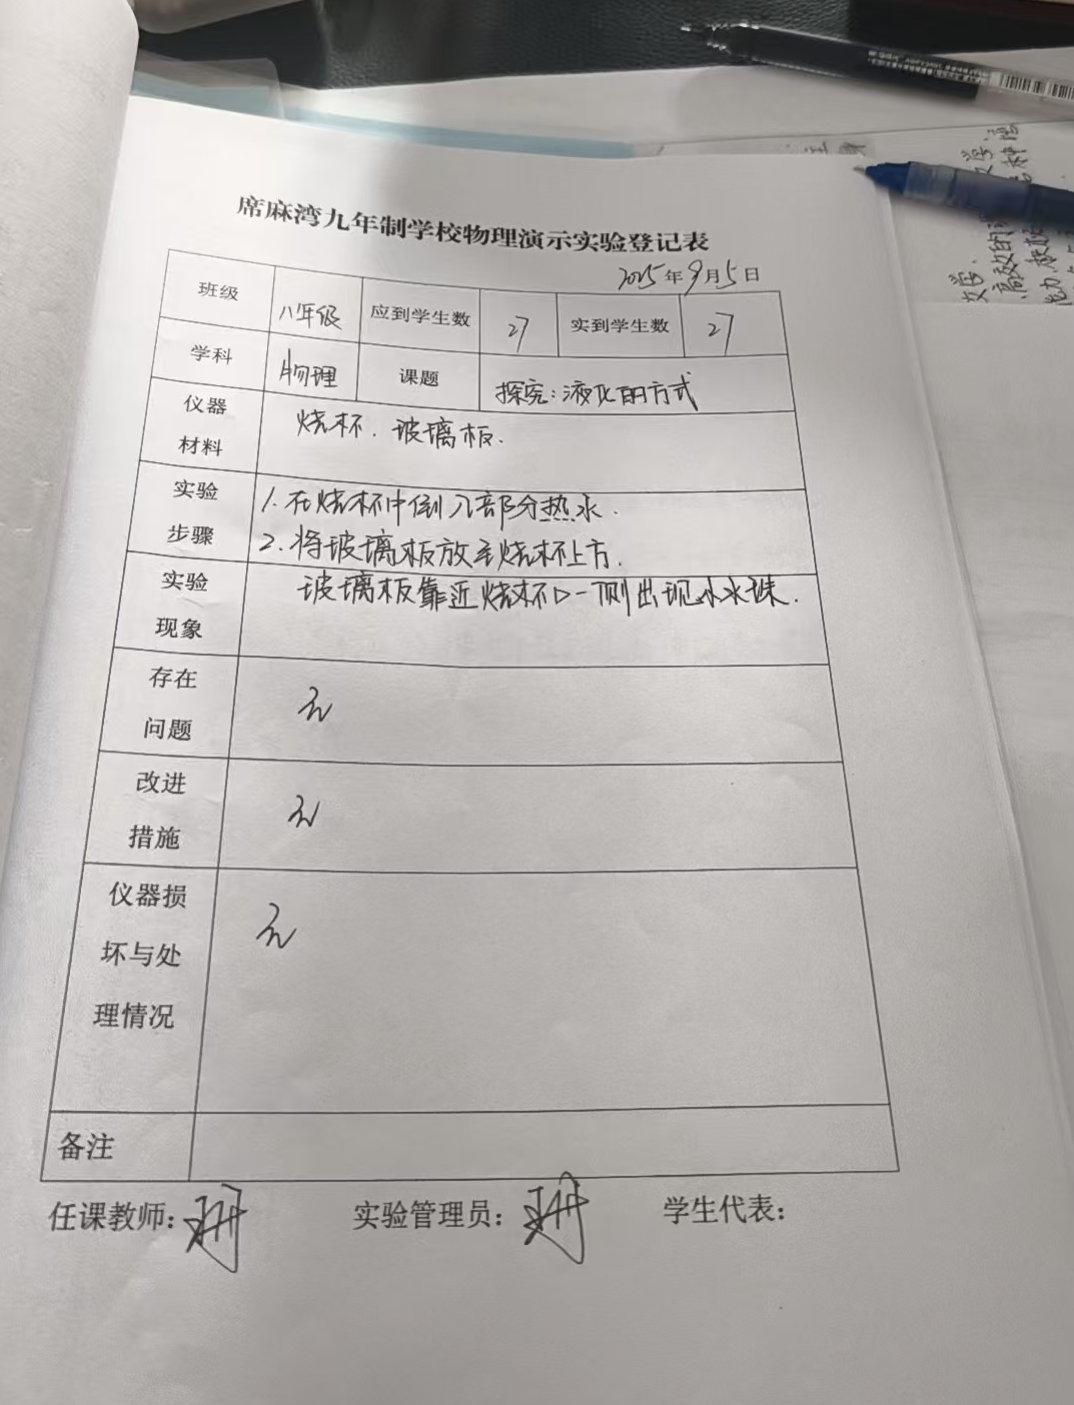 席麻湾九年制学校物理演示实验登记表
2025年9月5日
班级 八年级 应到学生数 27 实到学生数 27
学科 物理 课题 探究:液化的方式
仪器材料 烧杯.玻璃板.
实验步骤 1.在烧杯中倒入部分热水.
2.将玻璃板放至烧杯上方.
实验现象 玻璃板靠近烧杯口一侧出现小水珠.
存在问题 无
改进措施 无
仪器损坏与处理情况 无
备注
任课教师: 实验管理员: 学生代表: